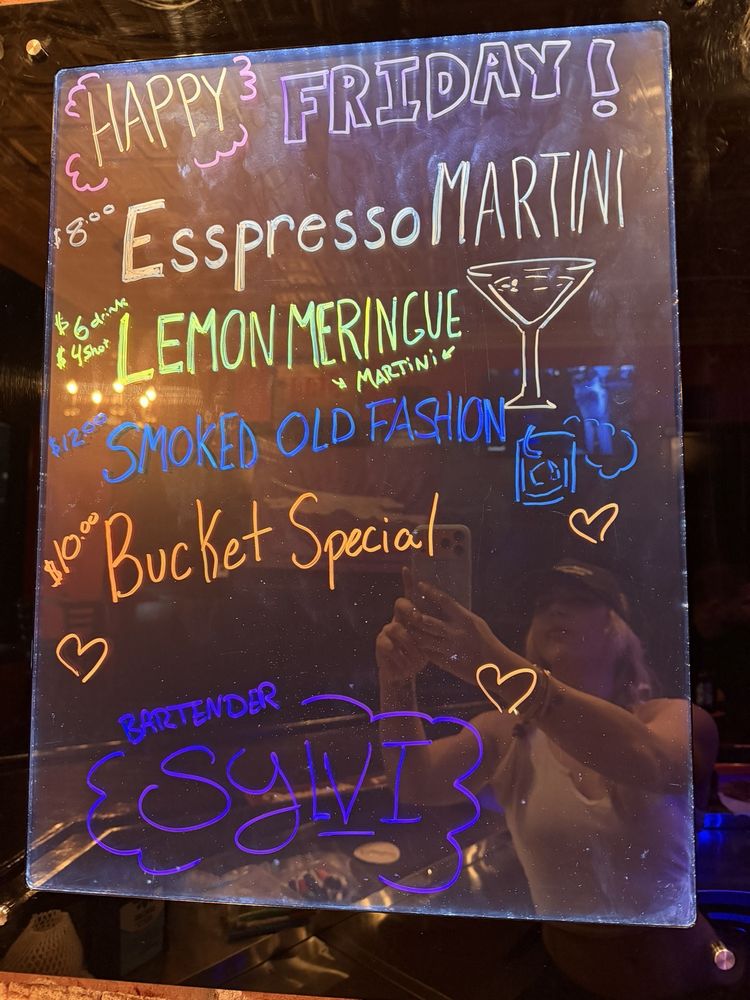 HAPPY FRIDAY!
$8.00 EsspressoMARTINI
$6 drink
$4 Shot
LEMON MERINGUE
MARTINI
$12.00 SMOKED OLD FASHION
$10.00 Bucket Special
BARTENDER
SylVI